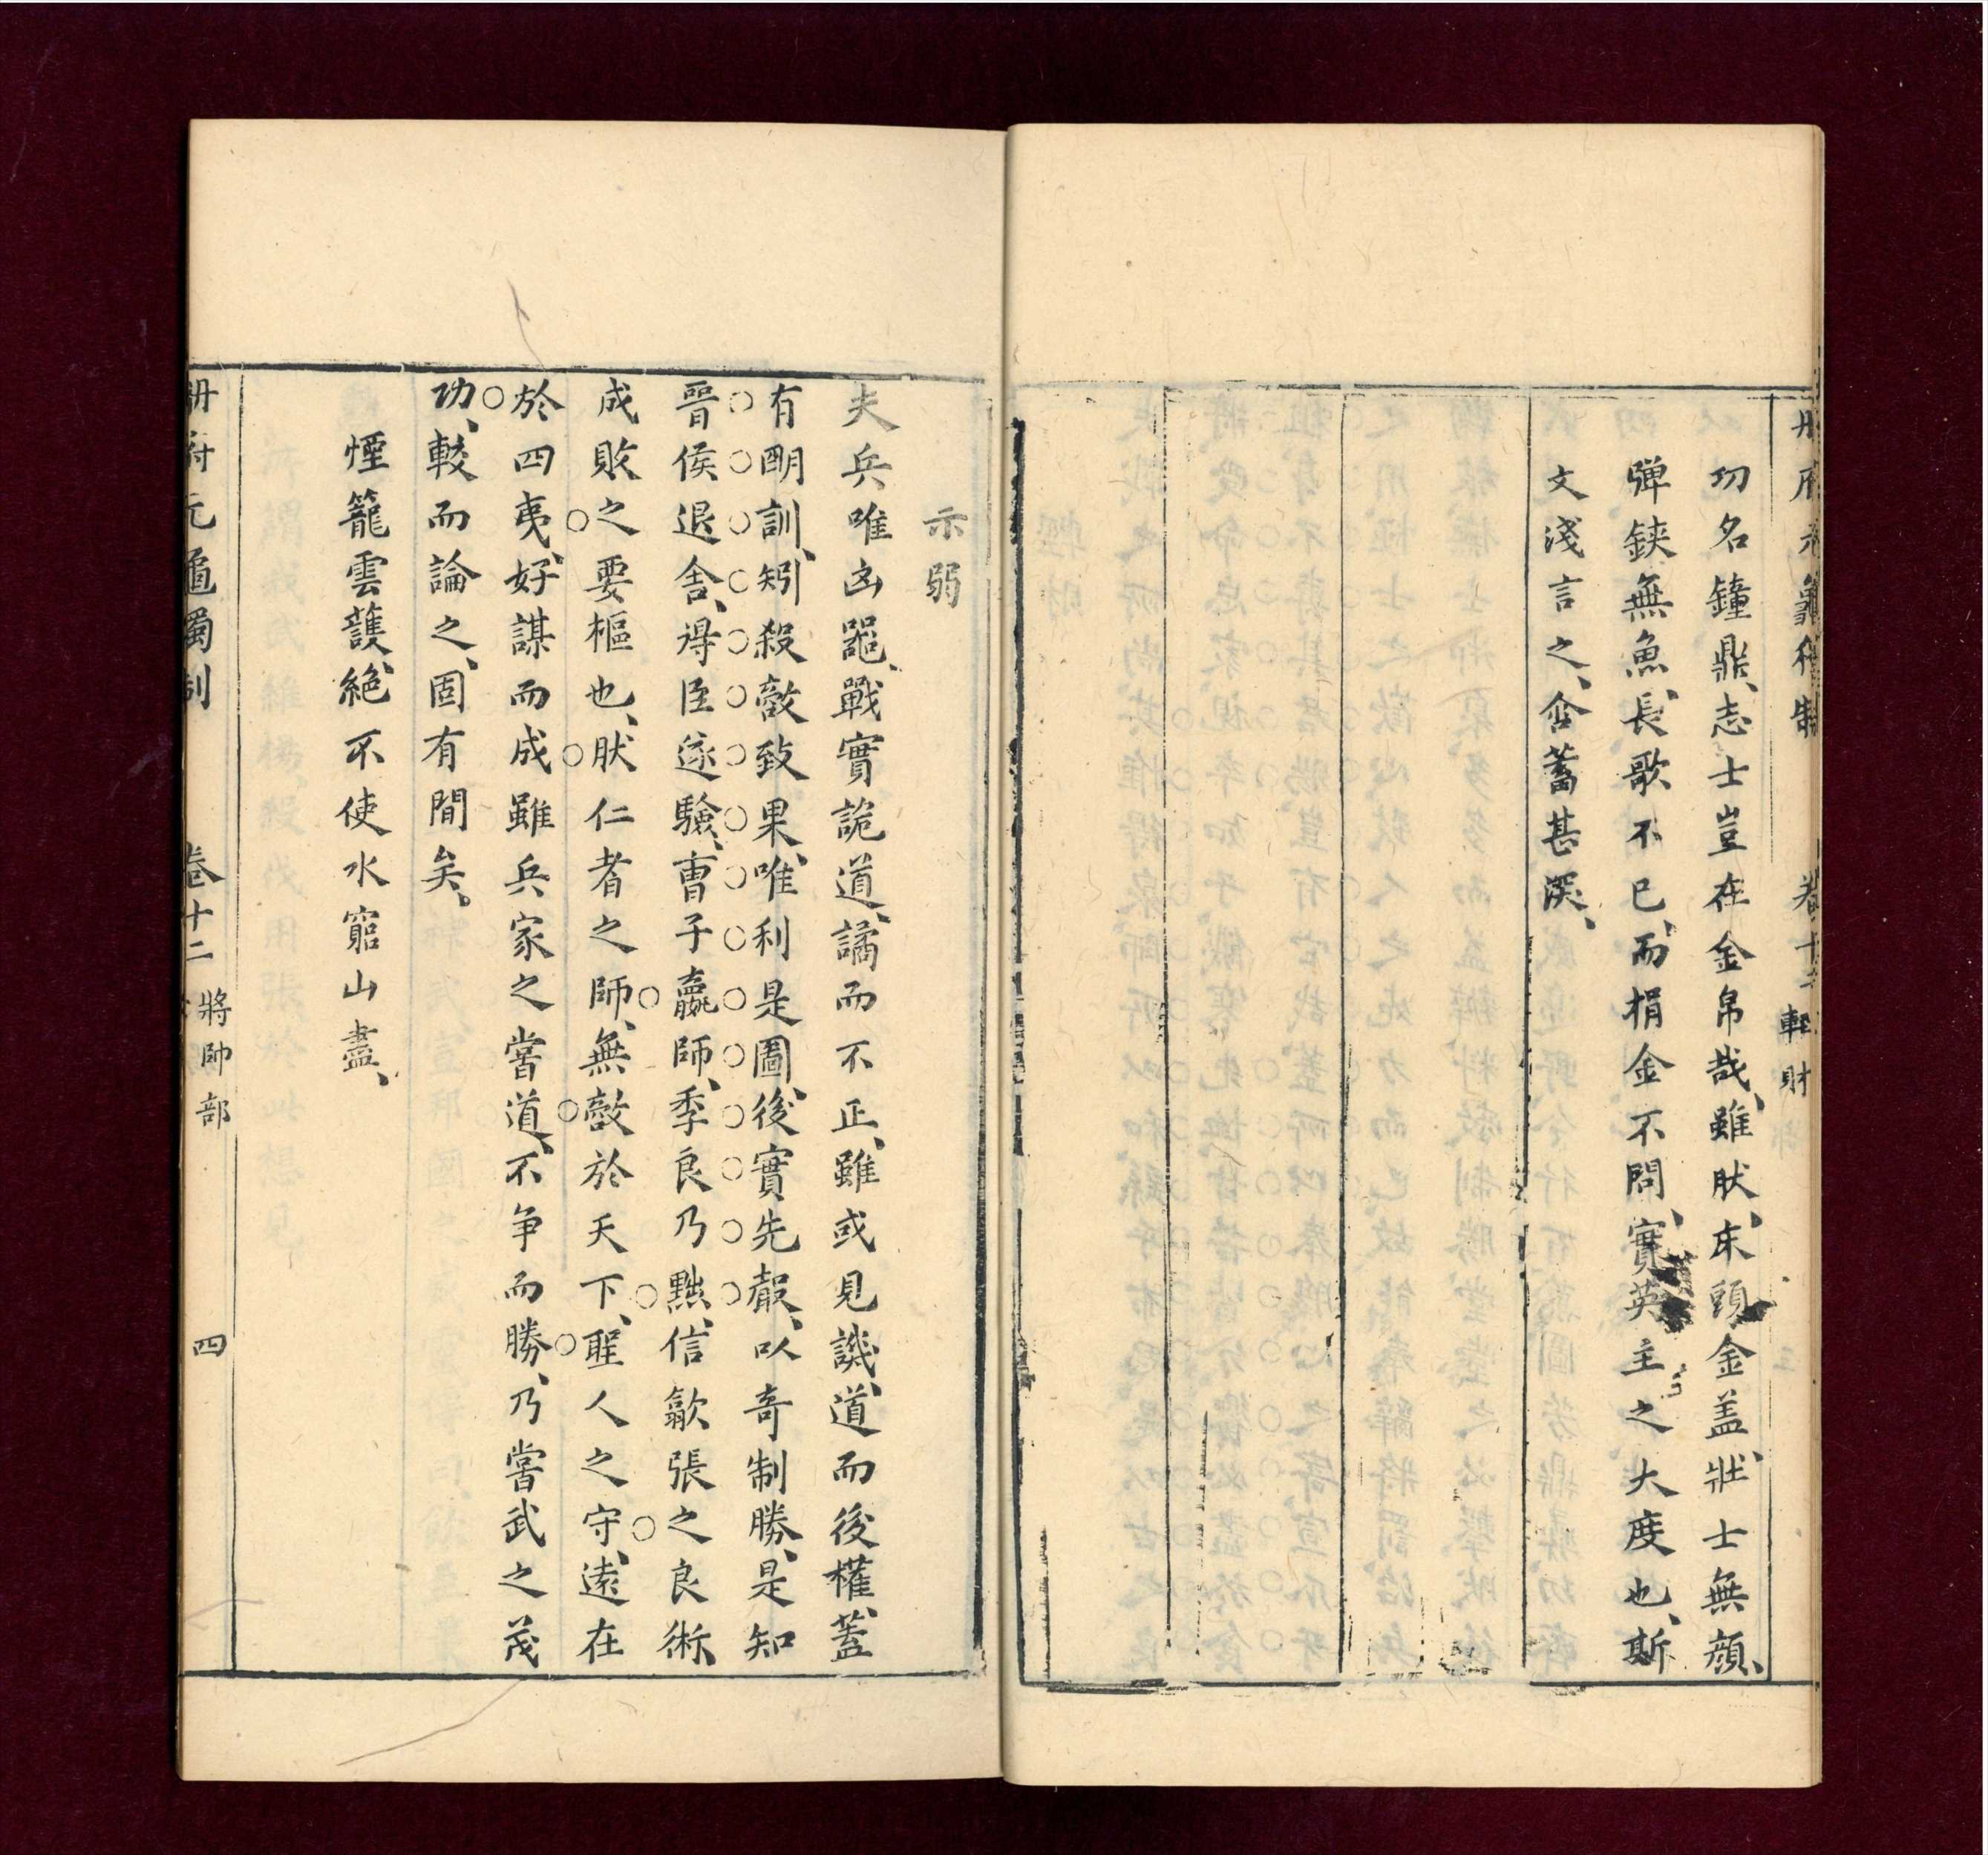 册府元龜獨制 卷十二 輕財
功名鐘鼎、志士豈在金帛哉、雖肰、床頭金盖、壯士無顔、
彈鋏無魚、長歌不已、而捐金不問、實英主之大度也、斯
文淺言之、含蓄甚深、
示弱
夫兵唯凶噐、戰實詭道、譎而不正、雖或見譏、道而後權、蓋
有明訓、矧殺敵致果、唯利是圖、後實先聲、以奇制勝、是知
晉侯退舍、得臣遂驗、曹子羸師、季良乃黜、信歙張之良術、
成敗之要樞也、肰仁者之師、無敵於天下、聖人之守、遠在
於四夷、好謀而成雖兵家之嘗道、不争而勝、乃嘗武之茂
功、較而論之、固有間矣。
煙籠雲護、絕不使水窮山盡、
册府元龜獨制 卷十二 將帥部 四